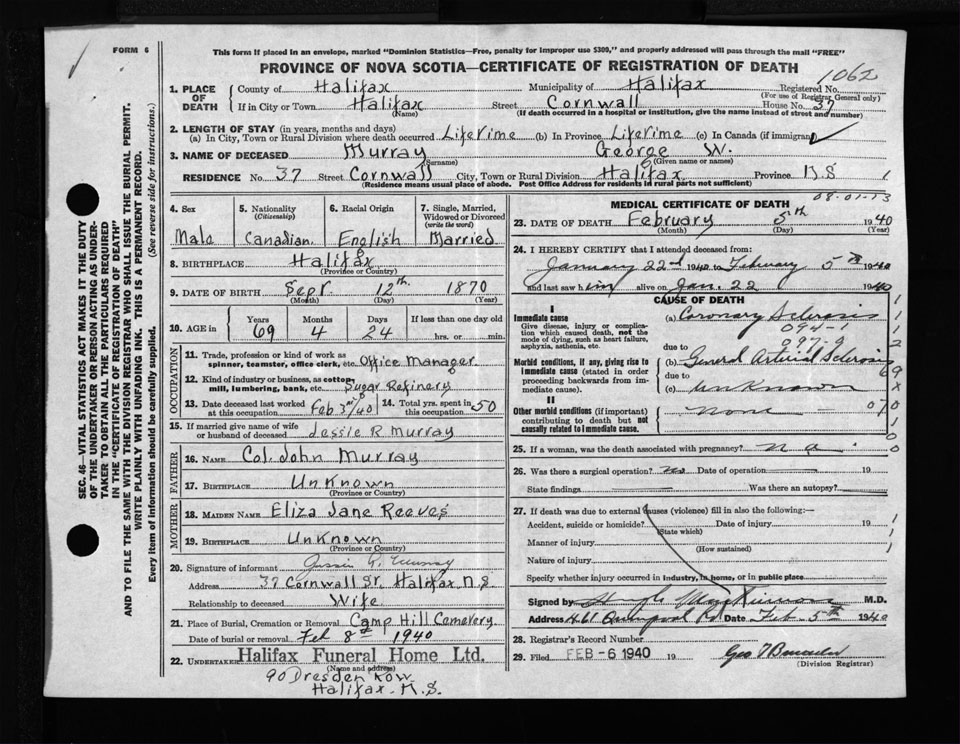 FORM 6
This form if placed in an envelope, marked "Dominion Statistics—Free, penalty for improper use $300," and properly addressed will pass through the mail "FREE"
PROVINCE OF NOVA SCOTIA—CERTIFICATE OF REGISTRATION OF DEATH
1062
SEC. 46—VITAL STATISTICS ACT MAKES IT THE DUTY
OF THE UNDERTAKER OR PERSON ACTING AS UNDER-
TAKER TO OBTAIN ALL THE PARTICULARS REQUIRED
IN THE "CERTIFICATE OF REGISTRATION OF DEATH"
AND TO FILE THE SAME WITH THE DIVISION REGISTRAR WHO SHALL ISSUE THE BURIAL PERMIT.
WRITE PLAINLY WITH UNFADING INK. THIS IS A PERMANENT RECORD.
Every item of information should be carefully supplied. (See reverse side for instructions.)
1. PLACE OF DEATH County of Halifax Municipality of Halifax Registered No.
(For use of Registrar General only)
If in City or Town Halifax Street Cornwall House No. 37
(Name) (If death occurred in a hospital or institution, give the name instead of street and number)
2. LENGTH OF STAY (in years, months and days)
(a) In City, Town or Rural Division where death occurred Lifetime (b) In Province Lifetime (c) In Canada (if immigrant)
3. NAME OF DECEASED Murray George W.
(Surname) (Given name or names)
RESIDENCE No. 37 Street Cornwall City, Town or Rural Division Halifax Province N.S
(Residence means usual place of abode. Post Office Address for residents in rural parts not sufficient)
4. Sex 5. Nationality (Citizenship) 6. Racial Origin 7. Single, Married, Widowed or Divorced (write the word)
Male Canadian. English Married
8. BIRTHPLACE Halifax
(Province or Country)
9. DATE OF BIRTH Sept. 12th. 1870
(Month) (Day) (Year)
10. AGE in Years Months Days If less than one day old
69 4 24 hrs. or min.
OCCUPATION
11. Trade, profession or kind of work as spinner, teamster, office clerk, etc. Office Manager.
12. Kind of industry or business, as cotton mill, lumbering, bank, etc. Sugar Refinery
13. Date deceased last worked at this occupation Feb 3rd/40 14. Total yrs. spent in this occupation 50
15. If married give name of wife or husband of deceased Jessie R Murray
FATHER
16. NAME Col. John Murray
17. BIRTHPLACE Unknown
(Province or Country)
MOTHER
18. MAIDEN NAME Eliza Jane Reeves
19. BIRTHPLACE Unknown
(Province or Country)
20. Signature of informant Jessie R. Murray
Address 37 Cornwall St. Halifax N.S.
Relationship to deceased Wife
21. Place of Burial, Cremation or Removal Camp Hill Cemetery
Date of burial or removal Feb 8th 1940
22. UNDERTAKER Halifax Funeral Home Ltd.
(Name and address)
90 Dresden Row
Halifax. N.S.
MEDICAL CERTIFICATE OF DEATH 08-01-13
23. DATE OF DEATH February 5th 1940
(Month) (Day) (Year)
24. I HEREBY CERTIFY that I attended deceased from:
January 22nd 1940 to February 5th 1940
and last saw him alive on Jan. 22 1940
CAUSE OF DEATH
I
Immediate cause (a) Coronary Sclerosis
Give disease, injury or complication which caused death, not the mode of dying, such as heart failure, asphyxia, asthenia, etc.
094-1
due to 097-0
Morbid conditions, if any, giving rise to immediate cause (stated in order proceeding backwards from immediate cause). (b) General Arterial Sclerosis
due to
(c) Unknown
II
Other morbid conditions (if important) contributing to death but not causally related to immediate cause. none
25. If a woman, was the death associated with pregnancy? n a
26. Was there a surgical operation? no Date of operation 19
State findings Was there an autopsy?
27. If death was due to external causes (violence) fill in also the following:—
Accident, suicide or homicide? Date of injury 19
(State which)
Manner of injury
(How sustained)
Nature of injury
Specify whether injury occurred in industry, in home, or in public place
Signed by Hugh MacKinnon M.D.
Address 461 Rd Date Feb. 5th 1940
28. Registrar's Record Number
29. Filed FEB -6 1940 19 Geo
(Division Registrar)